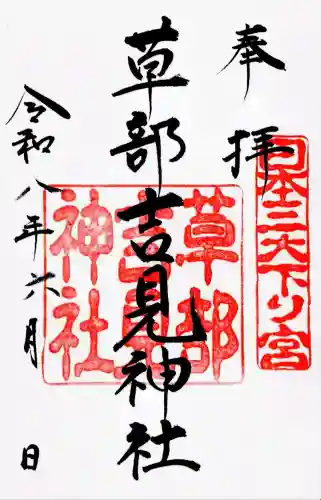 奉拝
日本三大下り宮
草部吉見神社
草部吉見神社
令和八年六月 日